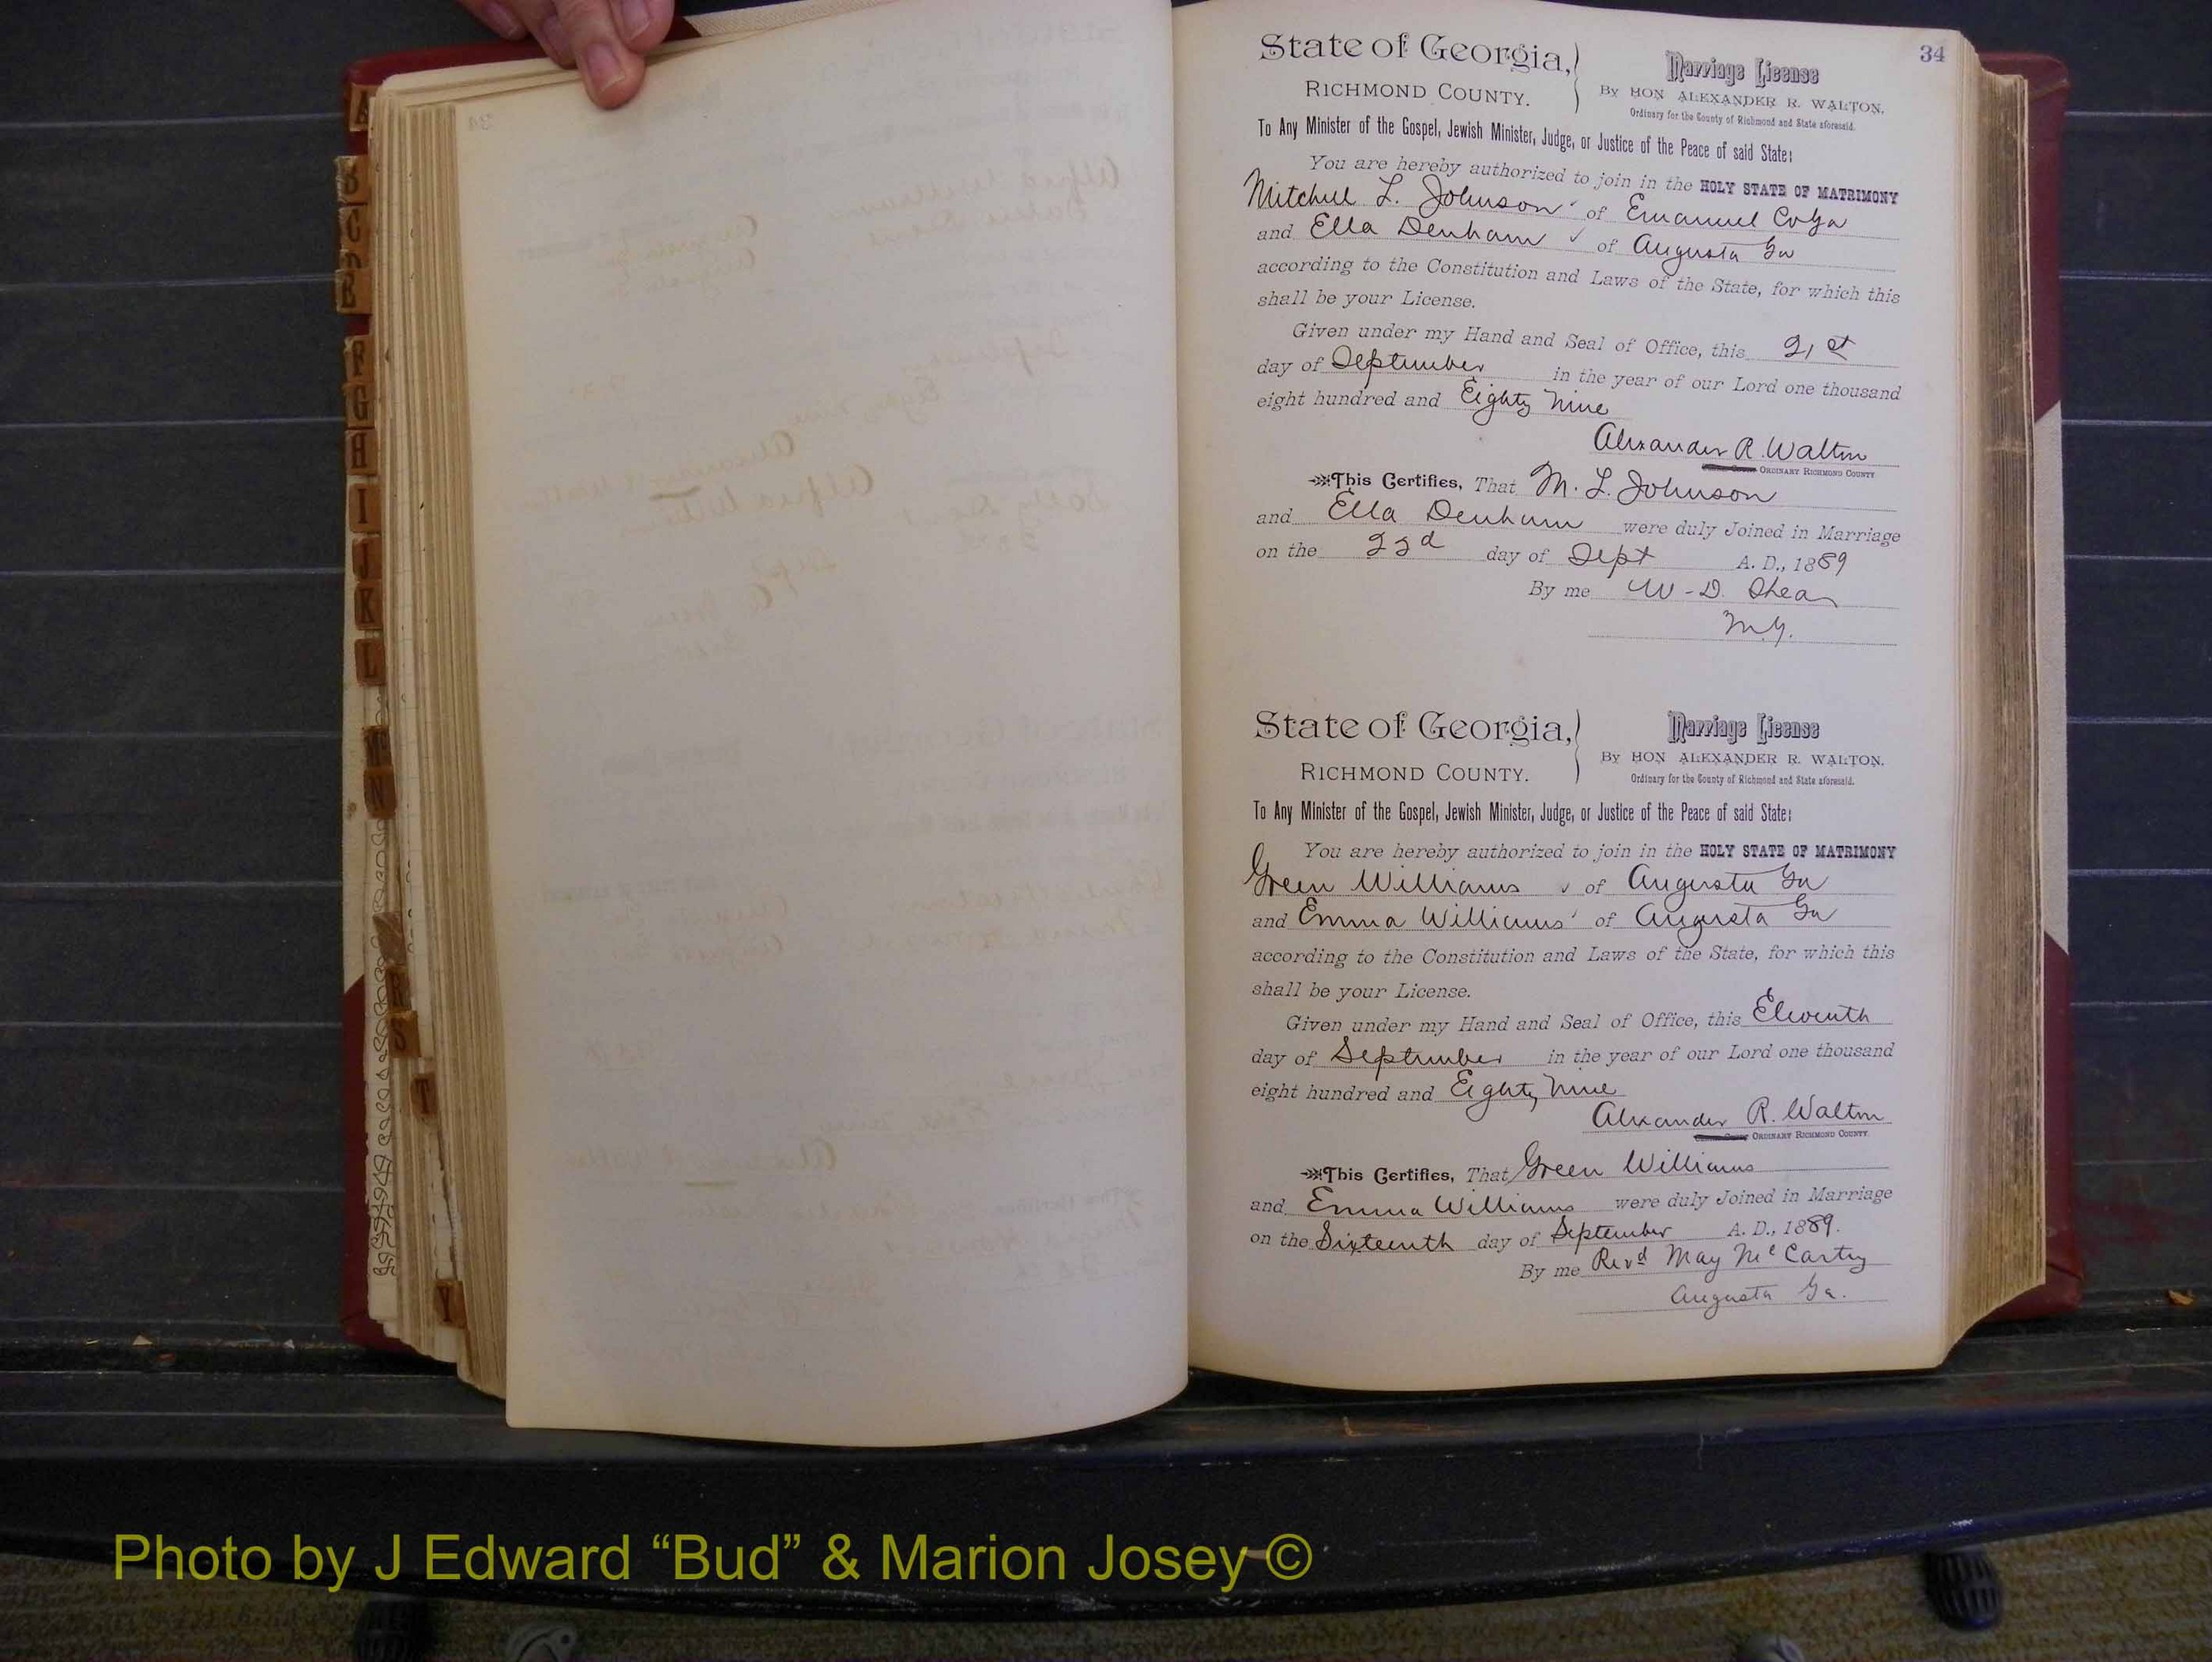 34
State of Georgia,
RICHMOND COUNTY.
Marriage License
By HON ALEXANDER R. WALTON,
Ordinary for the County of Richmond and State aforesaid.
To Any Minister of the Gospel, Jewish Minister, Judge, or Justice of the Peace of said State:
You are hereby authorized to join in the HOLY STATE OF MATRIMONY
Mitchell L. Johnson of Emanuel Co Ga
and Ella Denham of Augusta Ga
according to the Constitution and Laws of the State, for which this
shall be your License.
Given under my Hand and Seal of Office, this 21st
day of September in the year of our Lord one thousand
eight hundred and Eighty Nine
Alexander R. Walton
ORDINARY RICHMOND COUNTY
This Certifies, That M. L. Johnson
and Ella Denham were duly Joined in Marriage
on the 22d day of Sept A. D., 1889
By me W-D. Shea
M.G.
State of Georgia,
RICHMOND COUNTY.
Marriage License
By HON ALEXANDER R. WALTON.
Ordinary for the County of Richmond and State aforesaid.
To Any Minister of the Gospel, Jewish Minister, Judge, or Justice of the Peace of said State:
You are hereby authorized to join in the HOLY STATE OF MATRIMONY
Green Williams of Augusta Ga
and Emma Williams of Augusta Ga
according to the Constitution and Laws of the State, for which this
shall be your License.
Given under my Hand and Seal of Office, this Eleventh
day of September in the year of our Lord one thousand
eight hundred and Eighty Nine
Alexander R. Walton
ORDINARY RICHMOND COUNTY.
This Certifies, That Green Williams
and Emma Williams were duly Joined in Marriage
on the Sixteenth day of September A. D., 1889.
By me Revd May McCarty
Augusta Ga.
A
B
C
F
G
H
I
J
K
L
N
S
T
Y
Photo by J Edward “Bud” & Marion Josey ©